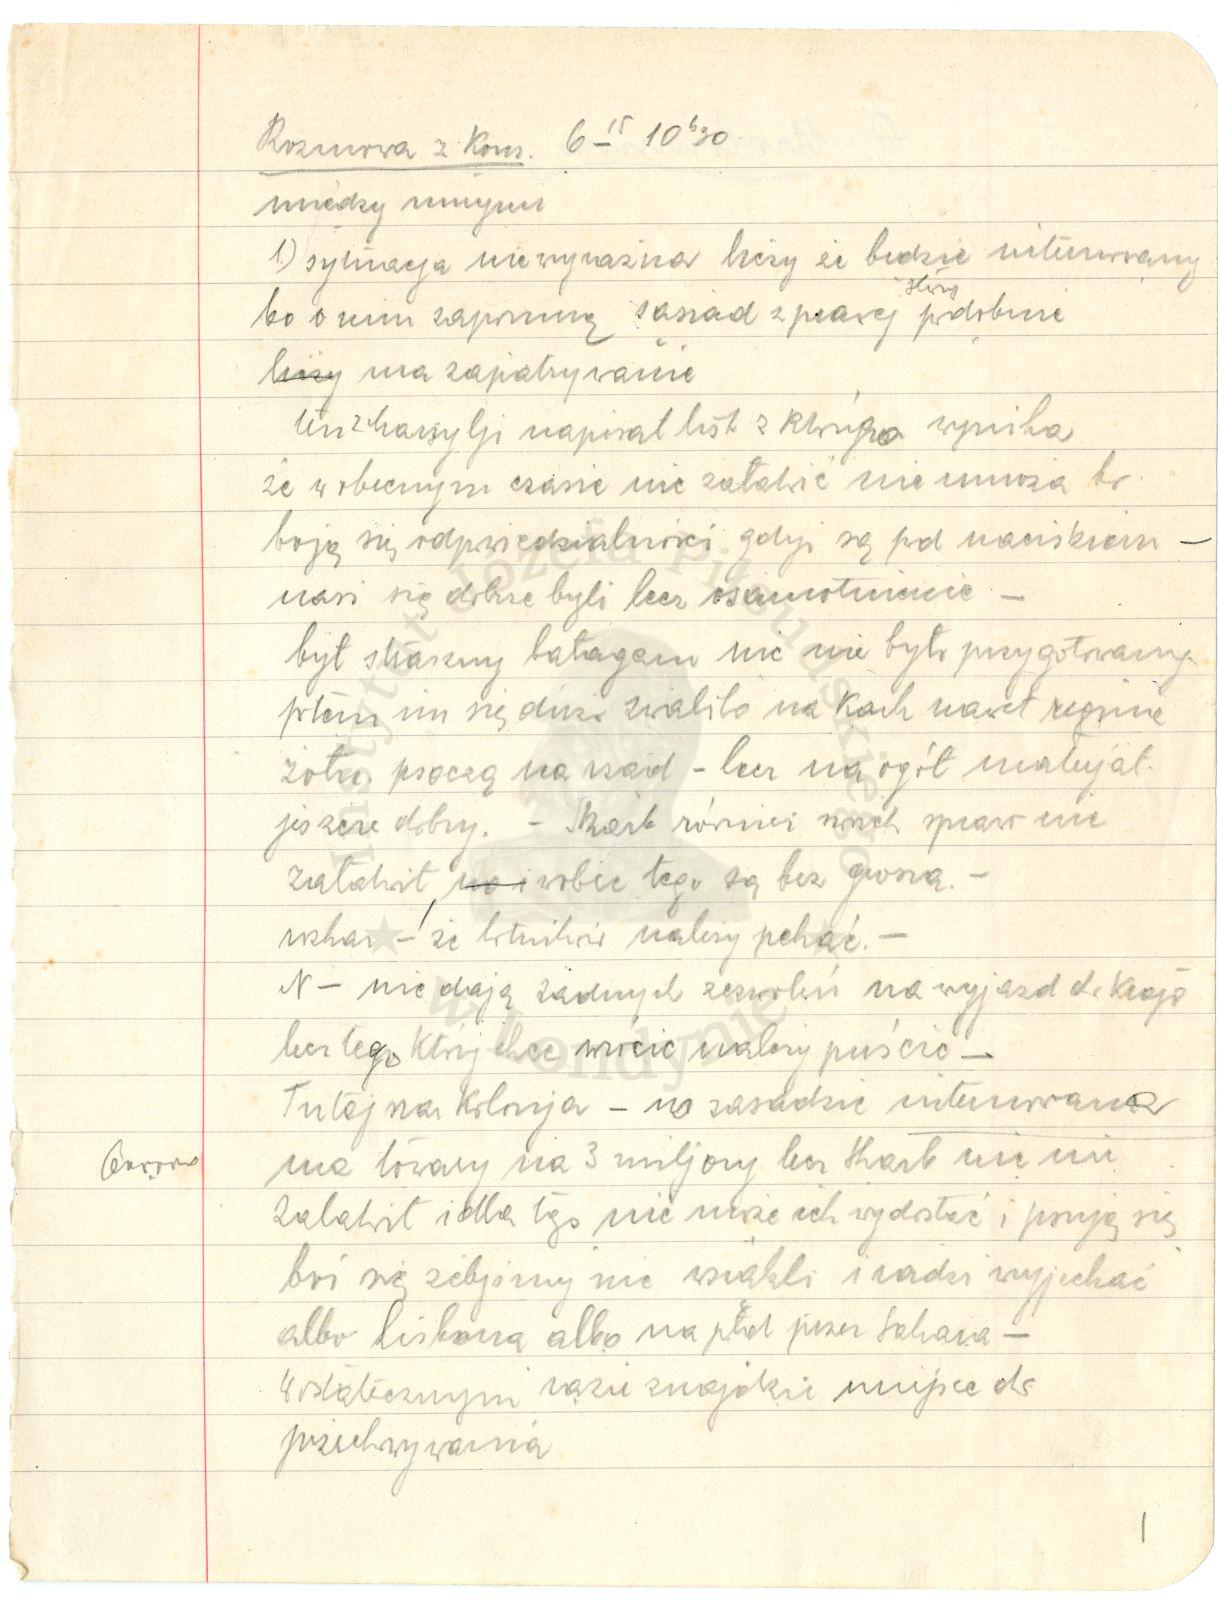 Rozmowa z Kons. 6 – 15 10h30
między innymi
1) sytuacja niewyraźna liczy że będzie internowany
bo o nim zapomną sąsiad z prawej strony podobnie
liczy ma zapatrywanie
Ten z napisał list z którego wynika
że w obecnym czasie nic załatwić nie można bo
boją się odpowiedzialności gdyż są pod naciskiem –
nasi się dobrze byli lecz osamotnienie –
był straszny bałagan nic nie było przygotowany
potem im się dużo zwaliło na kark nawet
żołn. psoczą na rząd – lecz na ogół materjał
jeszcze dobry. – Skarb również swoich spraw nie
załatwił, i wobec tego są bez grosza. –
– że lotników należy pchać. –
N – nie dają żadnych zezwoleń na wyjazd do Kraju
lecz tego który chce wrócić należy puścić –
Tutejsza Kolonja – w zasadzie internowana
ma towary na 3 miljony lecz Skarb nic nie
załatwił i dla tego nie może ich wydostać i psują się
boi się żebyśmy nie wsiąkli i radzi wyjechać
albo Lisbona albo na płd przez Sahara –
W ostatecznym razie znajdzie miejsce do
przechowywania
1
Instytut Józefa Piłsudskiego
w Londynie